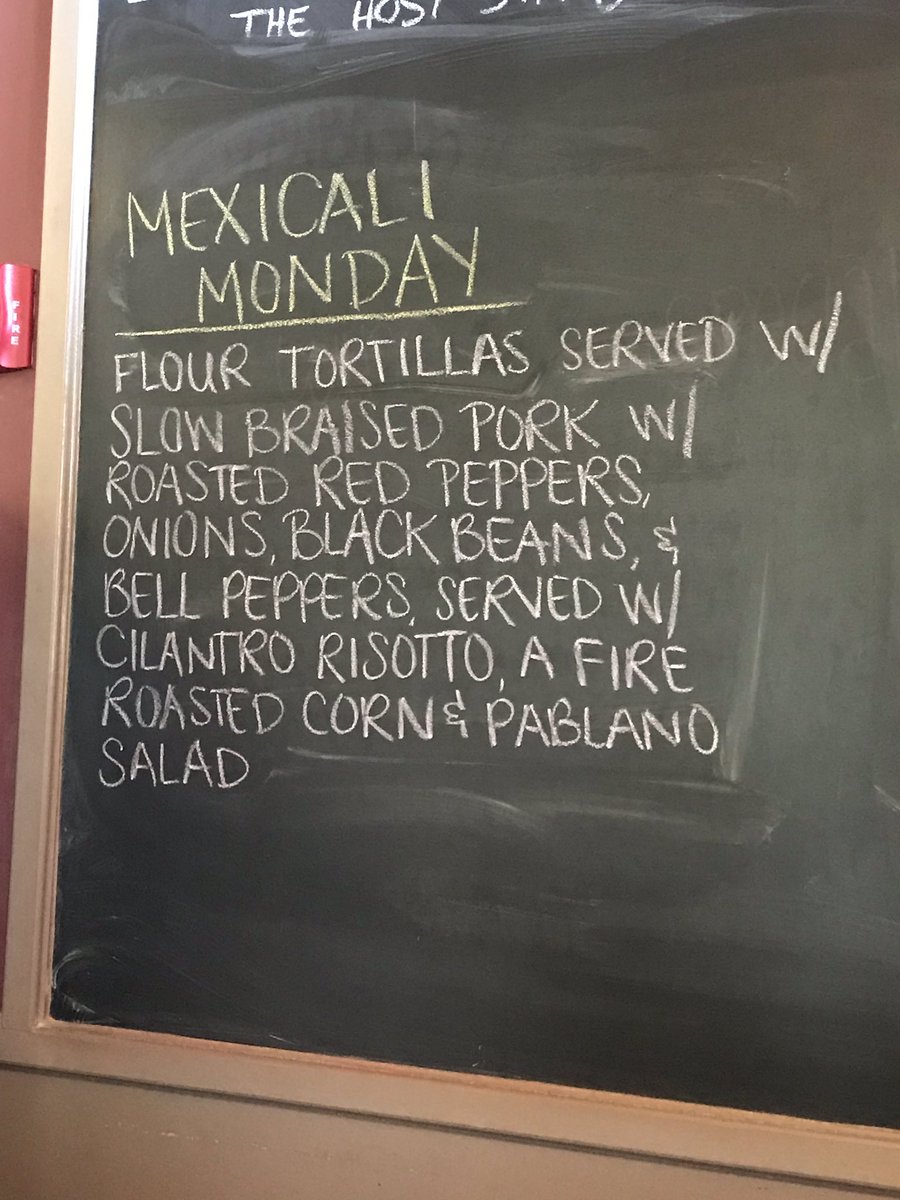 THE HOST
MEXICALI
MONDAY
FLOUR TORTILLAS SERVED W/
SLOW BRAISED PORK W/
ROASTED RED PEPPERS,
ONIONS, BLACK BEANS, &
BELL PEPPERS, SERVED W/
CILANTRO RISOTTO, A FIRE
ROASTED CORN & PABLANO
SALAD
FIRE